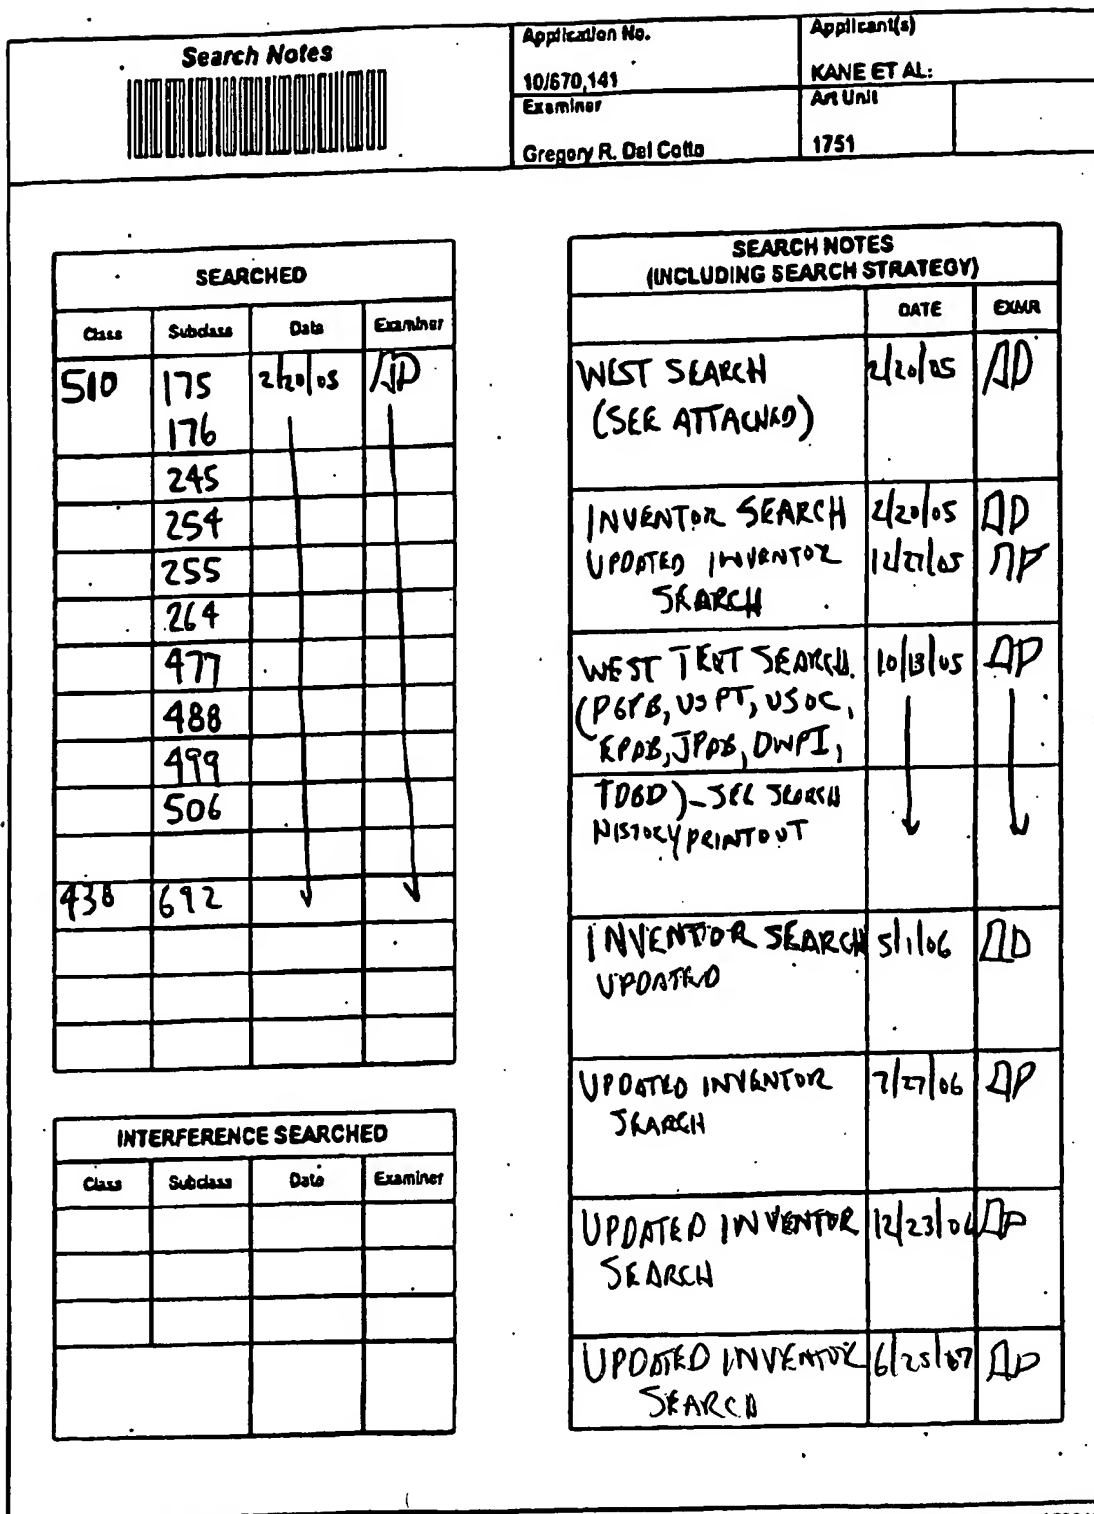 Search Notes
Application No.
10/670,141
Applicant(s)
KANE ET AL.
Examiner
Gregory R. Del Cotto
Art Unit
1751
SEARCHED
Class Subclass Date Examiner
510 175 2/20/05
176
245
254
255
264
477
488
499
506
438 692
INTERFERENCE SEARCHED
Class Subclass Date Examiner
SEARCH NOTES
(INCLUDING SEARCH STRATEGY)
DATE EXMR
WEST SEARCH 2/20/05
(SEE ATTACHED)
INVENTOR SEARCH 2/20/05
UPDATED INVENTOR 12/27/05
SEARCH
WEST TEXT SEARCH 10/13/05
(PGPB, USPT, USOC,
EPAB, JPAB, DWPI,
TDBD) - SEE SEARCH
HISTORY PRINTOUT
INVENTOR SEARCH 5/1/06
UPDATED
UPDATED INVENTOR 7/27/06
SEARCH
UPDATED INVENTOR 12/23/06
SEARCH
UPDATED INVENTOR 6/25/07
SEARCH